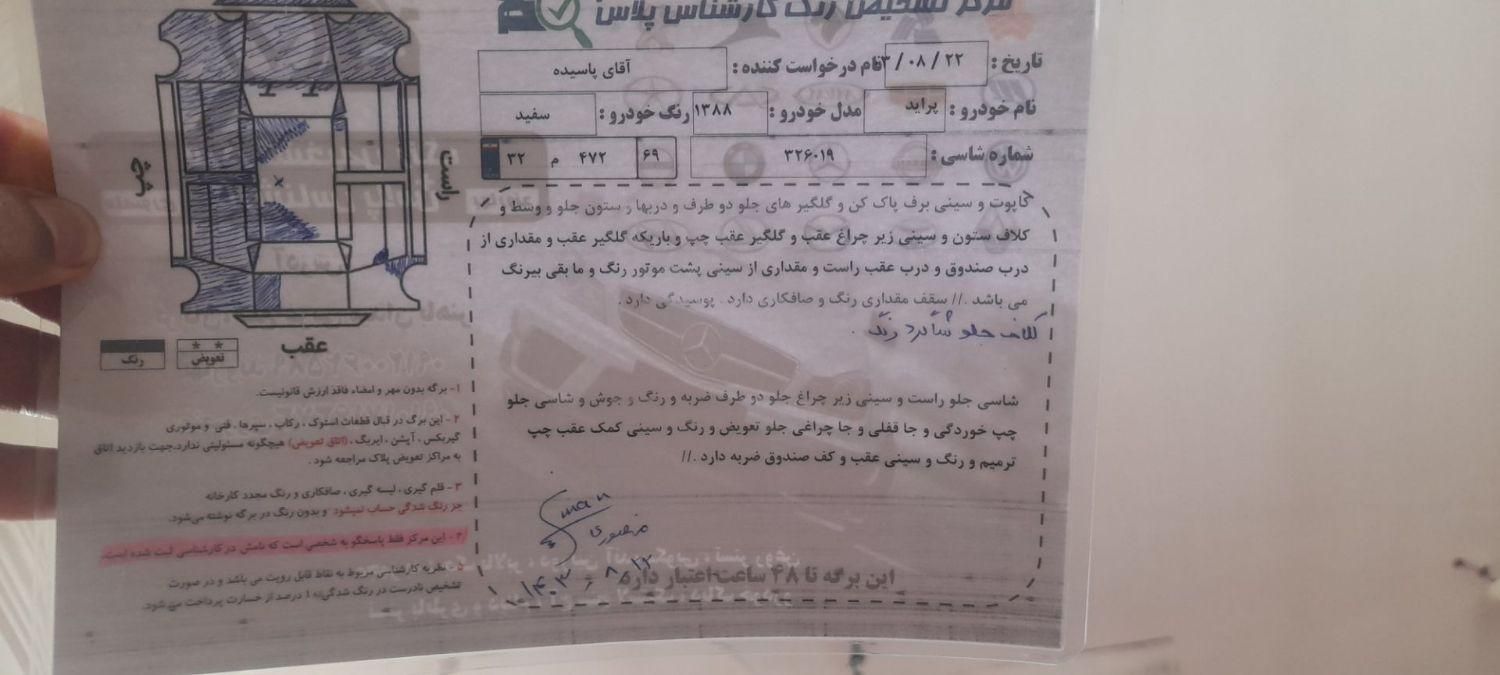 مرکز تشخیص رنگ کارشناس پلاس
تاریخ : ۲۲ / ۰۸ / ۳ نام درخواست کننده : آقای پاسیده
نام خودرو : پراید مدل خودرو : ۱۳۸۸ رنگ خودرو : سفید
شماره شاسی : ۳۲۶۰۱۹ ۶۹ ۴۷۲ م ۳۲
کاپوت و سینی برف پاک کن و گلگیر های جلو دو طرف و دربها و ستون جلو و وسط و
کلاف ستون و سینی زیر چراغ عقب و گلگیر عقب چپ و باریکه گلگیر عقب و مقداری از
درب صندوق و درب عقب راست و مقداری از سینی پشت موتور رنگ و ما بقی بیرنگ
می باشد .// سقف مقداری رنگ و صافکاری دارد . پوسیدگی دارد .
کلاف جلو شاگرد رنگ .
شاسی جلو راست و سینی زیر چراغ جلو دو طرف ضربه و رنگ و جوش و شاسی جلو
چپ خوردگی و جا قفلی و جا چراغی جلو تعویض و رنگ و سینی کمک عقب چپ
ترمیم و رنگ و سینی عقب و کف صندوق ضربه دارد .//
منصوری
۱۴۰۳ ، ۸ ، ۱۲
این برگه تا ۴۸ ساعت اعتبار دارد
راست
چپ
عقب
تعویض
رنگ
۱- برگه بدون مهر و امضاء فاقد ارزش قانونیست.
۲ - این برگ در قبال قطعات استوک ، رکاب ، سپرها ، فنی و موتوری
گیربکس ، آپشن ، ایربگ ، (اتاق تعویض) هیچگونه مسئولیتی ندارد.جهت بازدید اتاق
به مراکز تعویض پلاک مراجعه شود .
۳ - قلم گیری ، لیسه گیری ، صافکاری و رنگ مجدد کارخانه
جز رنگ شدگی حساب نمیشود و بدون رنگ در برگه نوشته می‌شود.
۴ - این مرکز فقط پاسخگو به شخصی است که نامش در کارشناسی ثبت شده است.
۵ - نظریه کارشناسی مربوط به نقاط قابل رویت می باشد و در صورت
تشخیص نادرست در رنگ شدگی ۱ درصد از خسارت پرداخت می‌شود.